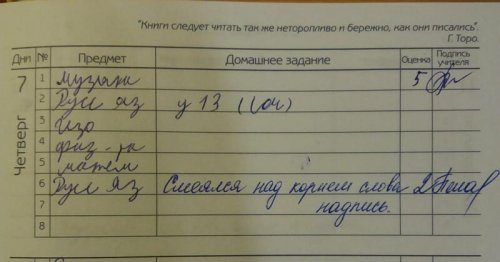 "Книги следует читать так же неторопливо и бережно, как они писались".
Г. Торо.
Дни № Предмет Домашнее задание Оценка Подпись учителя
Четверг 7
1 музыка 5
2 Русс яз у 13 (
3 Изо
4 физ-ра
5 матем
6 Русс Яз Смеялся над корнем слова 2
7 надпись.
8